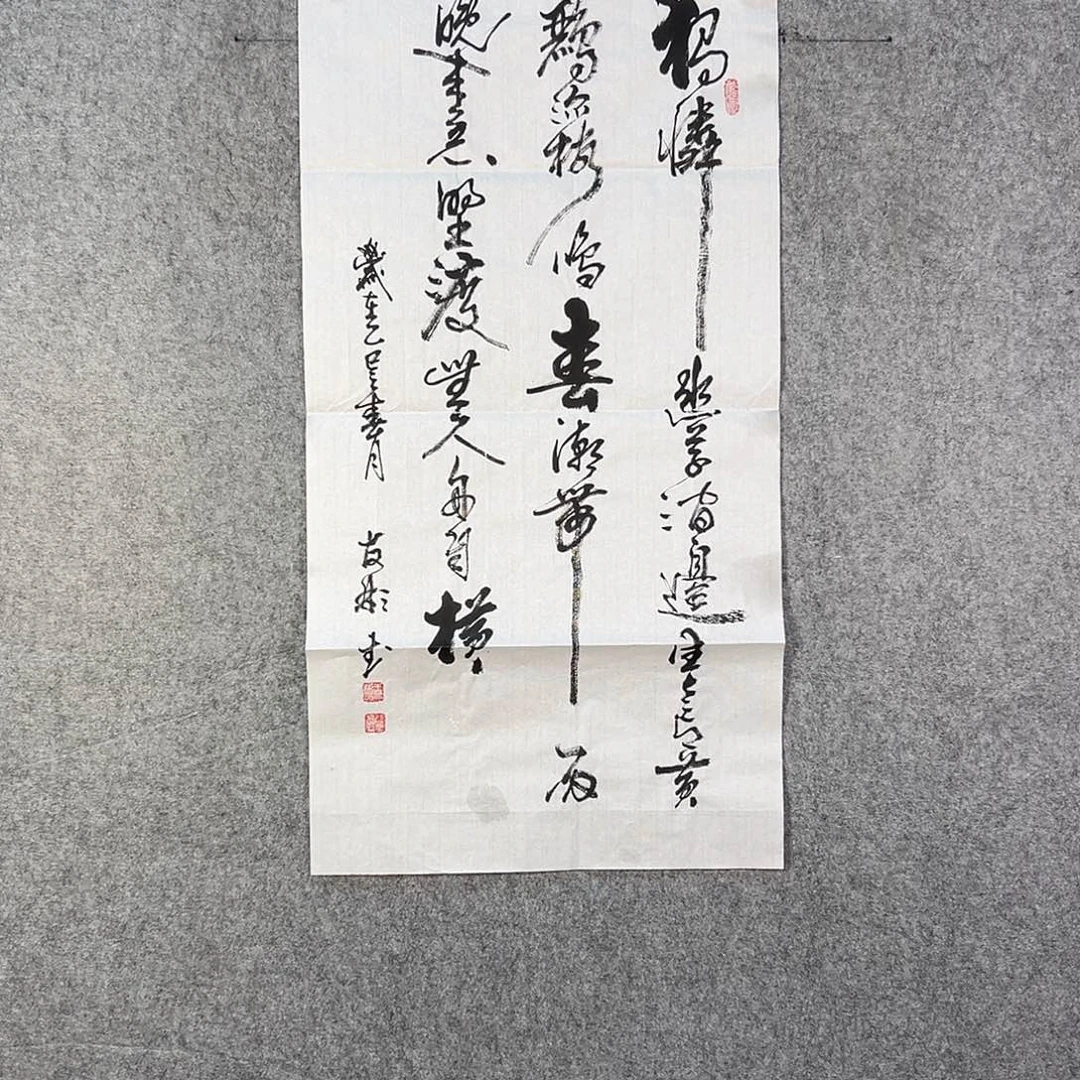 獨憐幽草澗邊生上有黃
鸝深樹鳴春潮帶雨
晚來急野渡無人舟自橫
歲在乙巳春月 友彬書